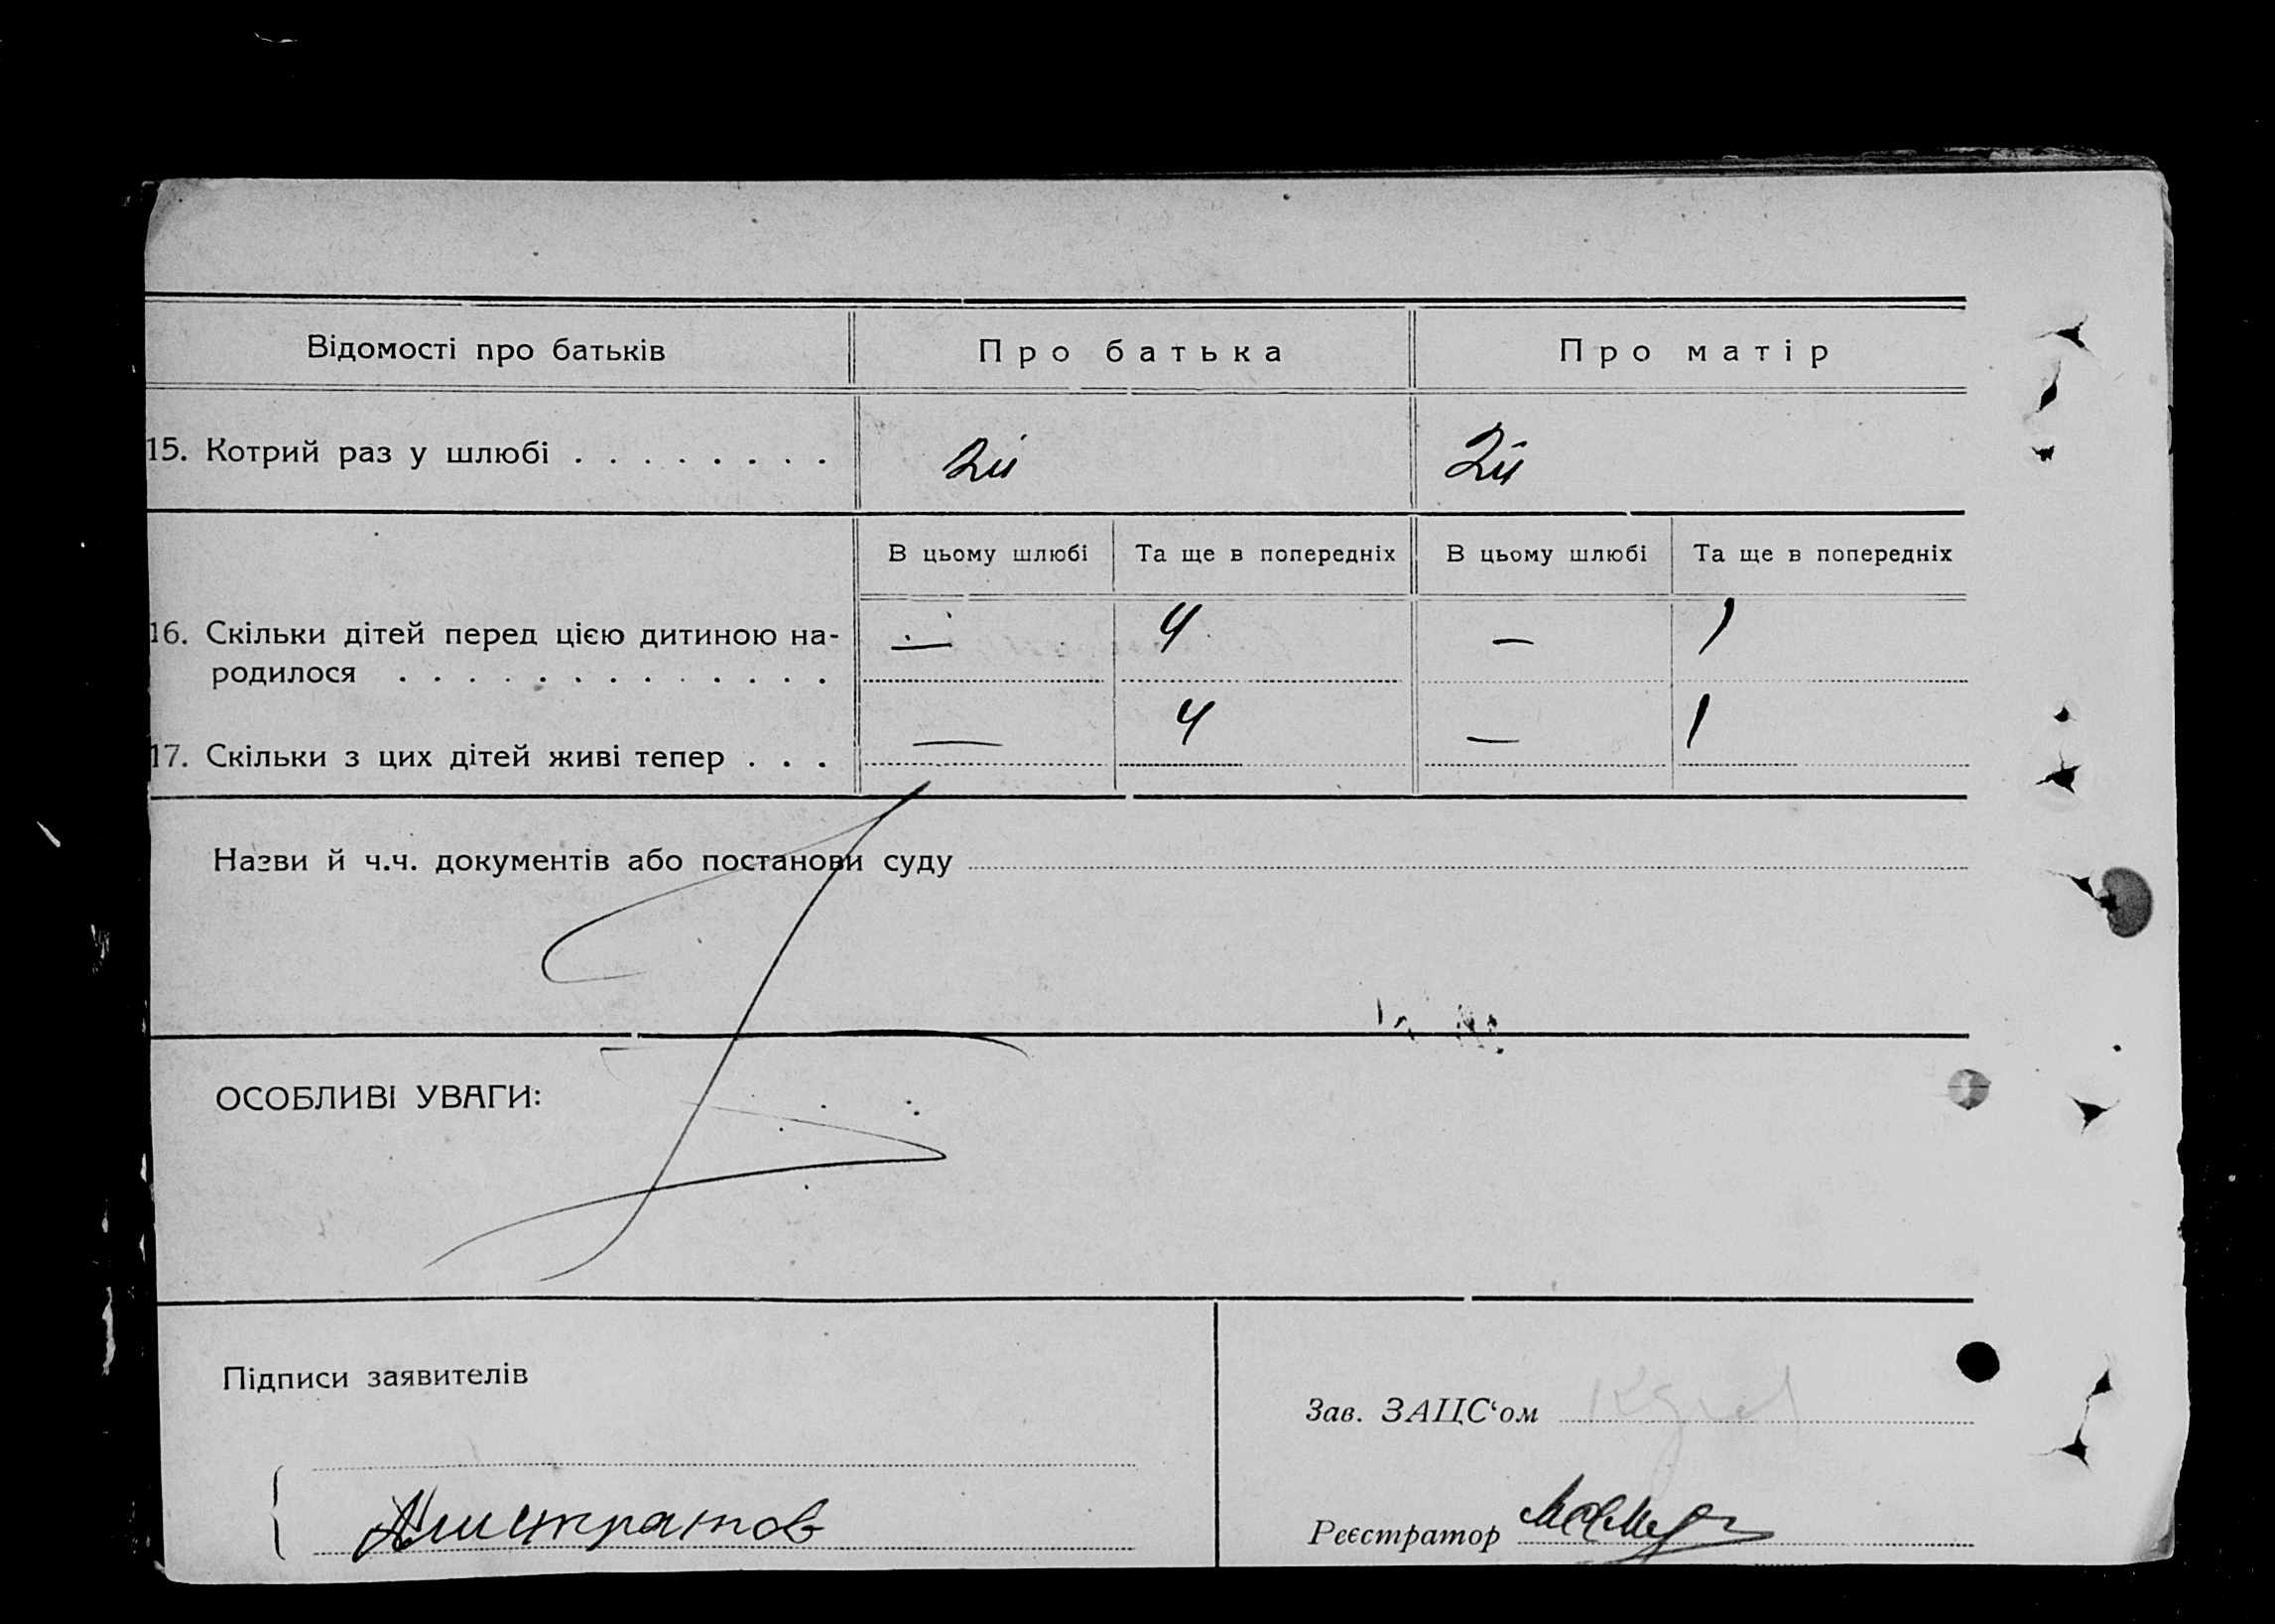 Відомості про батьків Про батька Про матір
15. Котрий раз у шлюбі . . . . . . . . 2й 2й
В цьому шлюбі Та ще в попередніх В цьому шлюбі Та ще в попередніх
16. Скільки дітей перед цією дитиною на- — 4 — 1
родилося . . . . . . . . . . . .
17. Скільки з цих дітей живі тепер . . . — 4 — 1
Назви й ч.ч. документів або постанови суду
ОСОБЛИВІ УВАГИ:
Підписи заявителів
Зав. ЗАЦС‘ом
Реєстратор